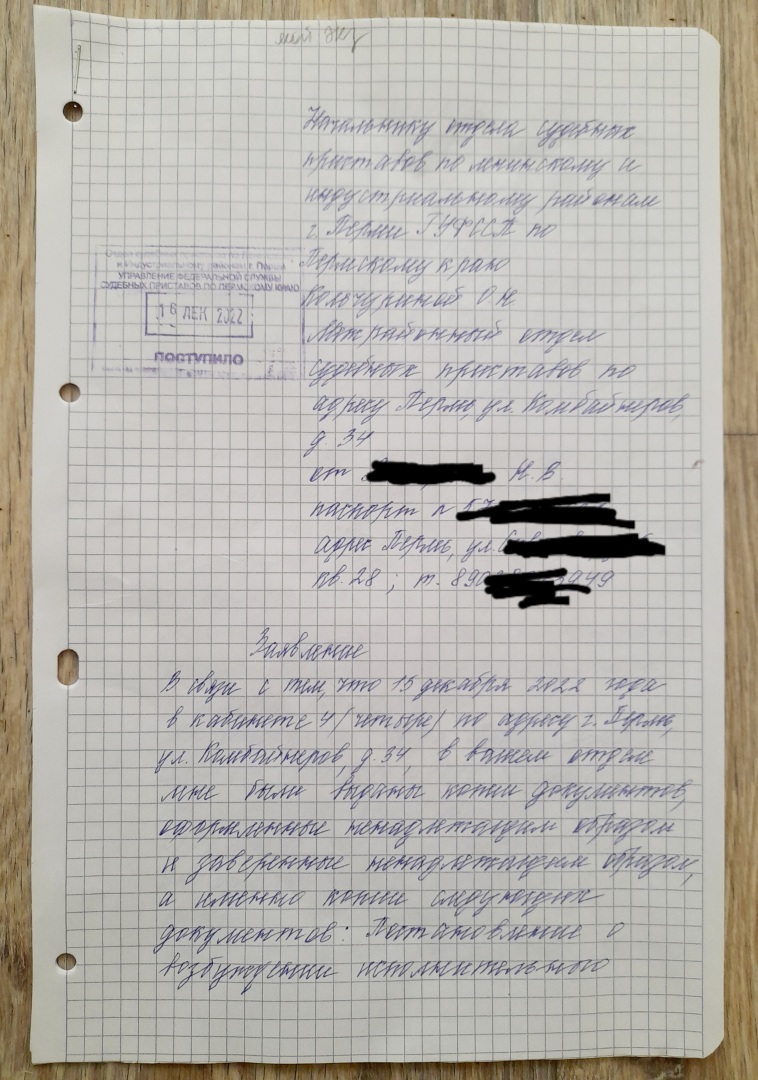 мой экз
Начальнику отдела судебных
приставов по Ленинскому и
Индустриальному районам
г. Перми ГУФССП по
Пермскому краю
О Н
Межрайонный отдел
судебных приставов по
адресу Пермь, ул. Комбайнеров,
д 34
от Н. В.
паспорт №
адрес Пермь, ул.
кв. 28 ; т. 890 3949
и Индустриальному районам г. Перми
УПРАВЛЕНИЕ ФЕДЕРАЛЬНОЙ СЛУЖБЫ
СУДЕБНЫХ ПРИСТАВОВ ПО ПЕРМСКОМУ КРАЮ
16 ДЕК 2022
ПОСТУПИЛО
Заявление
В связи с тем, что 15 декабря 2022 года
в кабинете 4 (четыре) по адресу г. Пермь,
ул. Комбайнеров, д. 34, в вашем отделе
мне были выданы копии документов,
оформленные ненадлежащим образом
и заверенные ненадлежащим образом,
а именно копии следующих
документов: Постановление о
возбуждении исполнительного